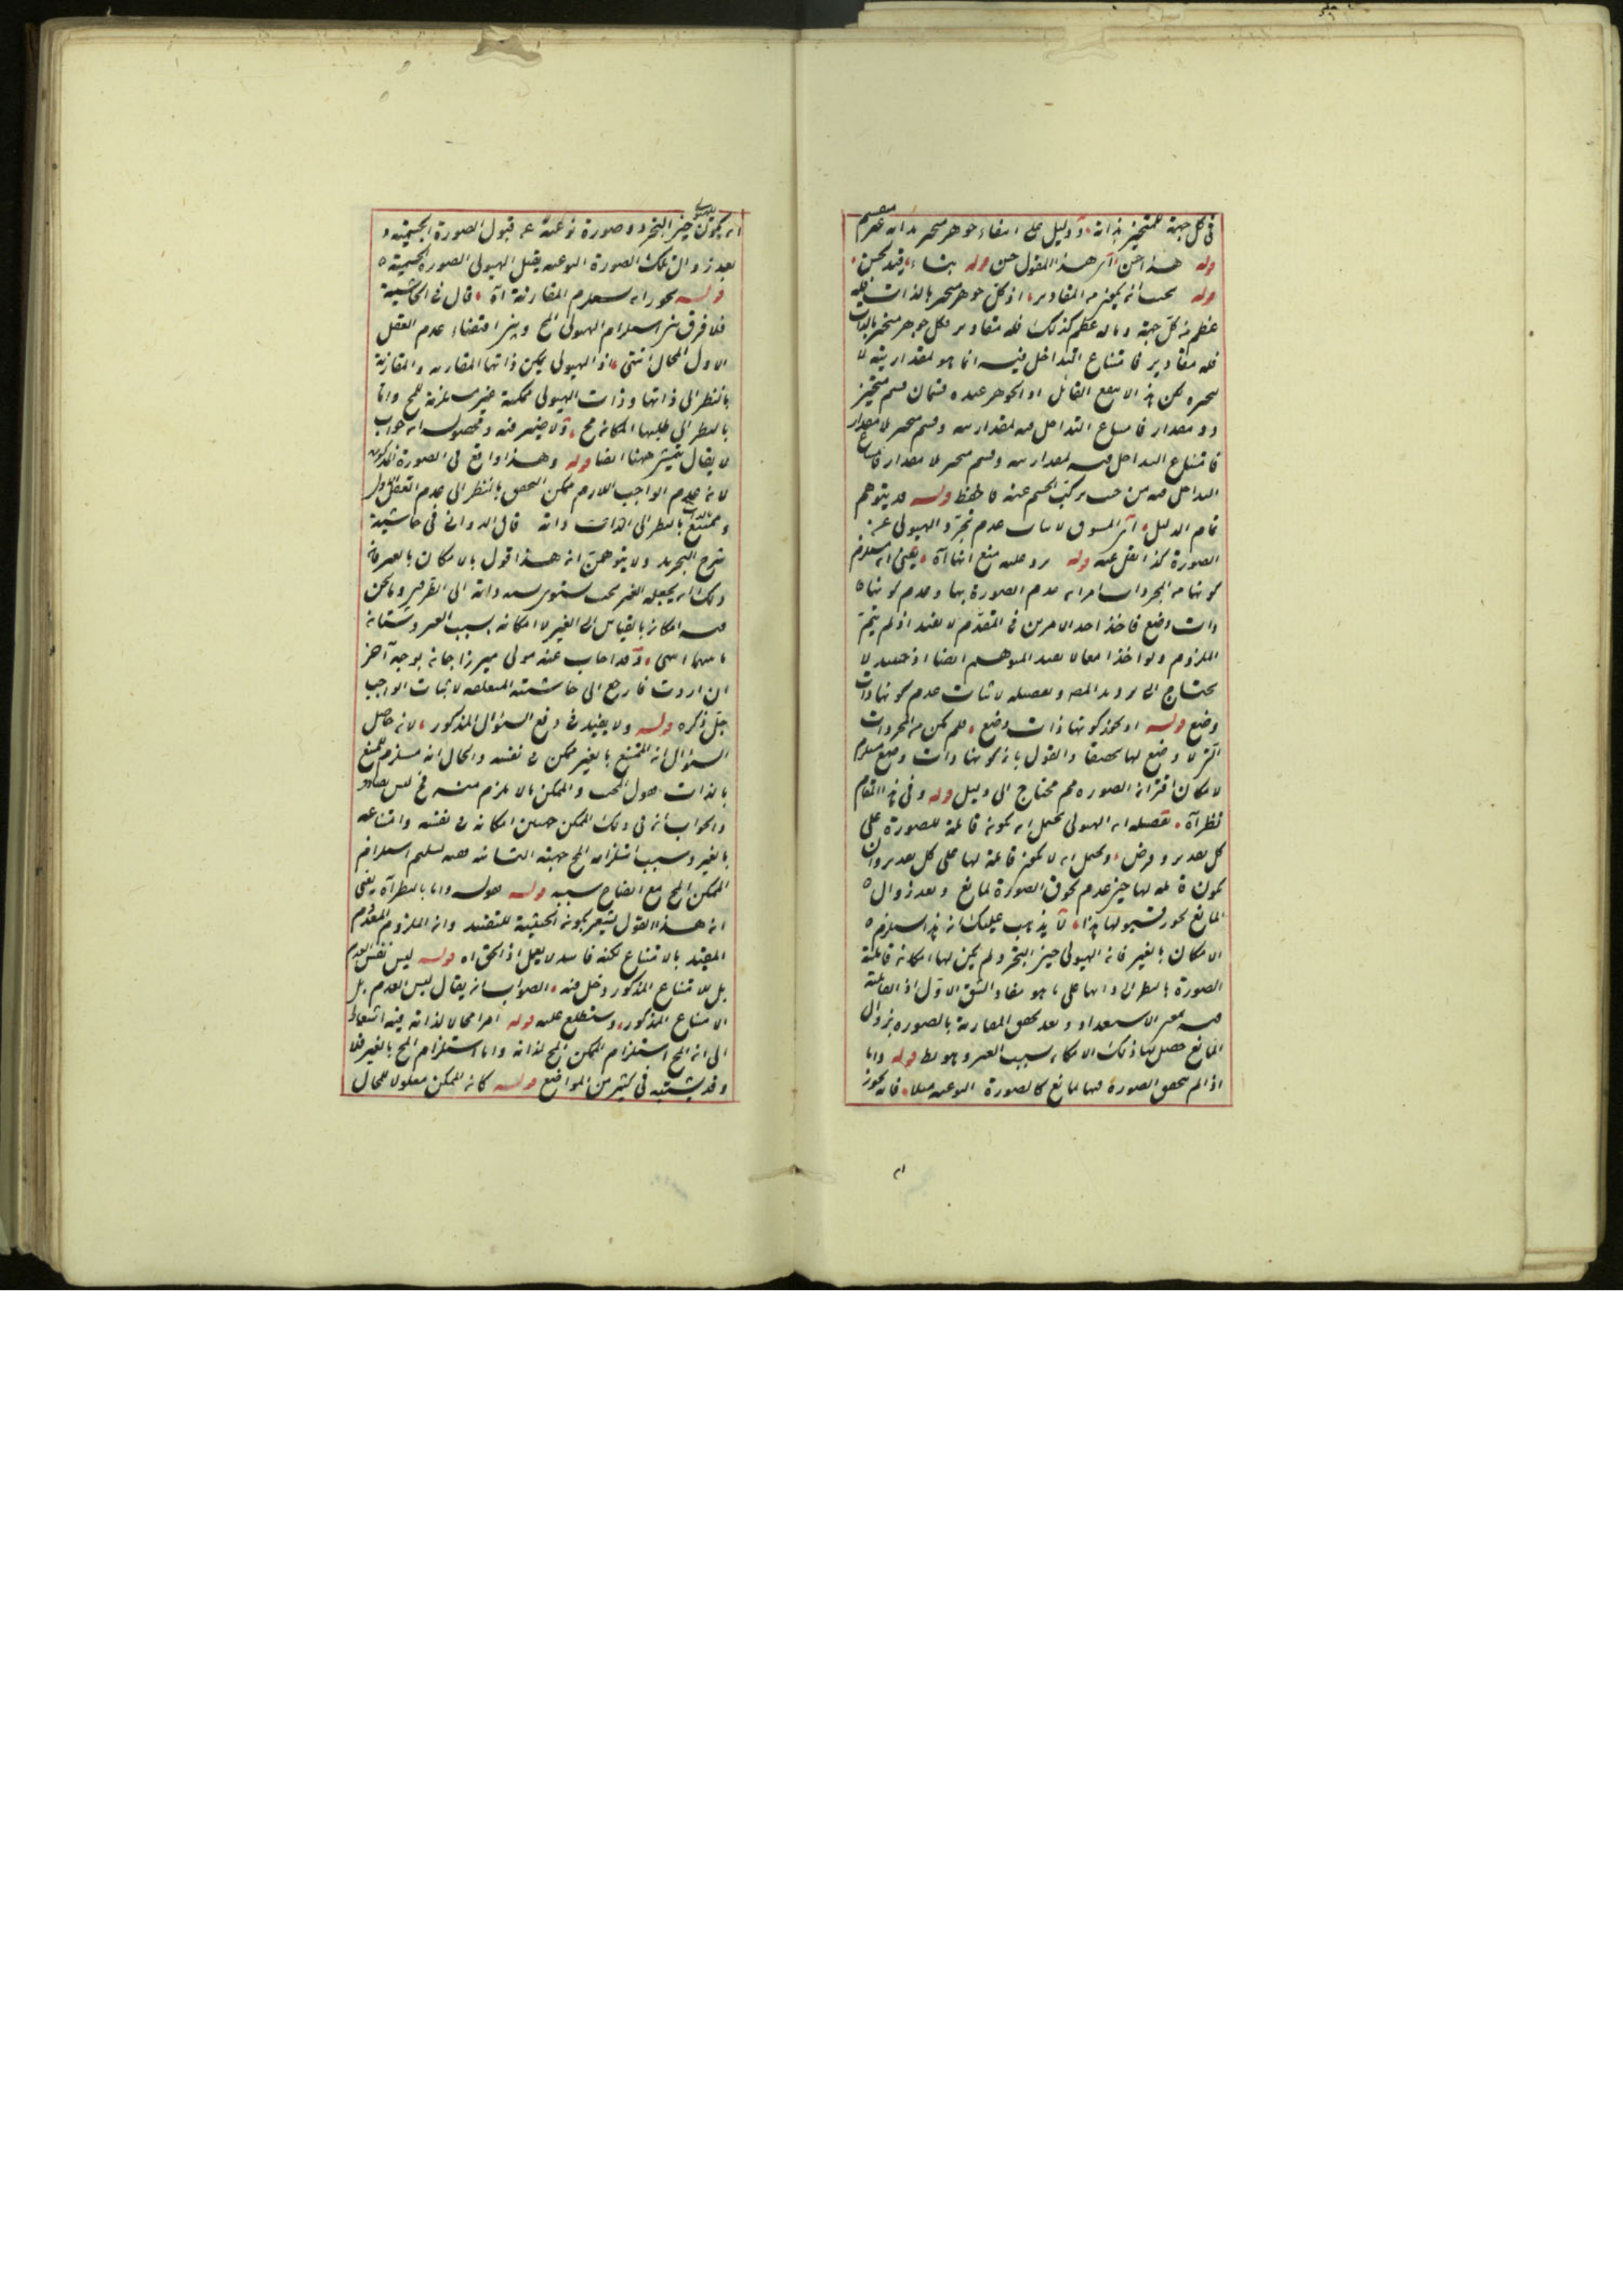 في كل جهة للمتحيز بذاته ولا دليل على انتفاء جوهر متحيز بذاته غير منقسم
قوله هذا احسن اى هذا القول حسن قوله بناء
قوله يجب ان يكون من المقادير اذ كل جوهر متحيز بالذات فله
عظم من كل جهة وما له عظم كذلك فله مقادير فكل جوهر متحيز بالذات
فله مقادير فامتناع التداخل فيه انما هو لمقداريته لا
لتحيزه لكن هذا لا ينفع القائل اذ الجوهر عنده قسمان قسم متحيز
ذو مقدار فامتناع التداخل فيه لمقداريته وقسم متحيز لا مقدار
فامتناع التداخل فيه لمقداريته وقسم متحيز لا مقدار فامتناع
التداخل فيه من حيث تركب الجسم عنه فاحفظ قوله قد يتوهم
تمام الدليل اى المسوق لاثبات عدم تجرد الهيولى عن
الصورة كذا نقل عنه قوله يرد عليه منع انها آه يعنى
كونها من المجردات امران عدم الصورة بها وعدم كونها
ذات وضع فاخذ احد الامرين في المقدم لا يفيد اذ لم يتم
الملزوم ولو اخذا معا لا يفيد المتوهم ايضا اذ حينئذ لا
يحتاج الى ترديد المص وتفصيله لاثبات عدم كونها ذات
وضع قوله او يجوز كونها ذات وضع فلم يكن من المجردات
التى لا وضع لها والقول بان كونها ذات وضع
لامكان اقتران الصورة محتاج الى دليل قوله وفي هذا المقام
نظر آه تفصيله ان الهيولى يحتمل ان يكون قابلة للصورة على
كل تقدير وفرض ويحتمل ان لا يكون قابلة لها على كل تقدير وان
يكون قابلة لها حين عدم لحوق الصورة لمانع وبعد زوال
المانع يجوز قبولها هذا لا يذهب عليك ان هذا
الامكان بالغير فان الهيولى حين التجرد لم يكن لها امكان قابلية
الصورة بالنظر الى ذاتها على ما هو مفاد الشق الاول
الاستعداد وبعد تحقق المقارنة بالصورة بزوال
المانع حصل لها ذلك الامكان بسبب الغير وهو بط قوله واما
اذا لم يتحقق الصورة فيها لمانع كالصورة النوعية مثلا فانه يجوز
ان يكون للهيولى حين التجرد صورة نوعية عن قبول الصورة الجسمية و
بعد زوال تلك الصورة النوعية يقبل الهيولى الصورة الجسمية
قوله يجوز ان يستلزم المقارنة آه قال في الحاشية
فلا فرق بين استلزام الهيولى المح وبين اقتضاء عدم العقل
الاول المحال انتهى اذ الهيولى يمكن ذاتها المقارنة والمقارنة
بالنظر الى ذاتها وذات الهيولى ممكنة غير مستلزمة للمح واما
بالنظر الى امكانه مح ولا ضير فيه ومحصوله ان جواب
لا يقال يتمشى ههنا ايضا قوله وهذا واقع في الصورة المذكورة
لان عدم الواجب اللازم ممكن التحقق بالنظر الى عدم العقل الاول
وممتنع بالنظر الى الذات ذاته قال الدوانى في حاشية
شرح التجريد ولا يتوهمن ان هذا قول بالامكان بالغير فان
ذلك ان يجعله الغير بحيث يستوى نسبة ذاته الى الطرفين وما نحن
فيه امكان بالقياس الى الغير لا امكان بسبب الغير وشتان
ما بينهما انتهى وقد اجاب عنه مولى ميرزا جان بوجه آخر
ان اردت فارجع الى حاشيته المتعلقة لاثبات الواجب
جل ذكره قوله ولا يفيد في دفع السؤال المذكور لان حاصل
السؤال ان الممتنع بالغير ممكن في نفسه والحال انه مستلزم للممتنع
بالذات والممكن ما لا يلزم منه مح
والجواب انه في ذلك الممكن جهتين امكانه في نفسه وامتناعه
بالغير وسبب استلزام المح جهته الثانية ففيه تسليم استلزام
الممكن المح مع ايضاح سببه قوله واما بالنظر آه يعنى
ان هذا القول يشعر بكون الحيثية للتقييد وان الملزوم العدم
المقيد بالامتناع لكنه فاسد اذ الحق ان قوله ليس نفس العدم
بل للامتناع المذكور دخل فيه الصواب ان يقال ليس العدم بل
الامتناع المذكور وستطلع عليه قوله امرا محالا لذاته فيه اشعار
الى ان المح استلزام الممكن المح لذاته واما استلزام المح بالغير فلا
وقد يشتبه في كثير من المواضع قوله كان الممكن معلولا للمحال